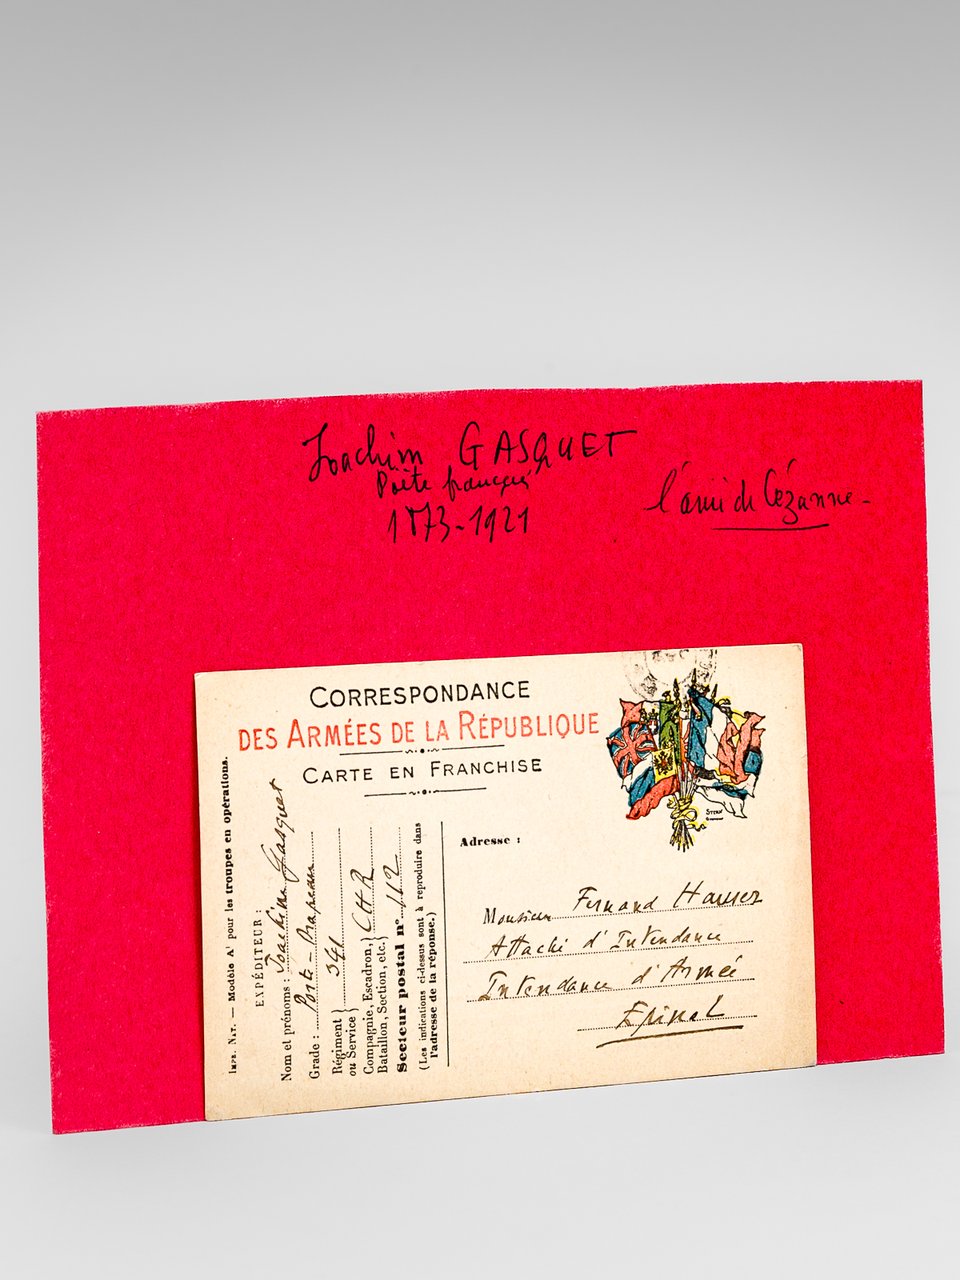 Joachim GASQUET
Poète français
1873-1921
l'ami de Cézanne -
CORRESPONDANCE
DES ARMÉES DE LA RÉPUBLIQUE
CARTE EN FRANCHISE
Impr. Nat. — Modèle A¹ pour les troupes en opérations.
EXPÉDITEUR :
Nom et prénoms : Joachim Gasquet
Grade : Porte-Drapeau
Régiment
ou Service } 341
Compagnie, Escadron,
Bataillon, Section, etc. } CHR
Secteur postal n° 112
(Les indications ci-dessus sont à reproduire dans
l'adresse de la réponse.)
Adresse :
Monsieur Fernand Hauser
Attaché d'Intendance
Intendance d'Armée
Epinal